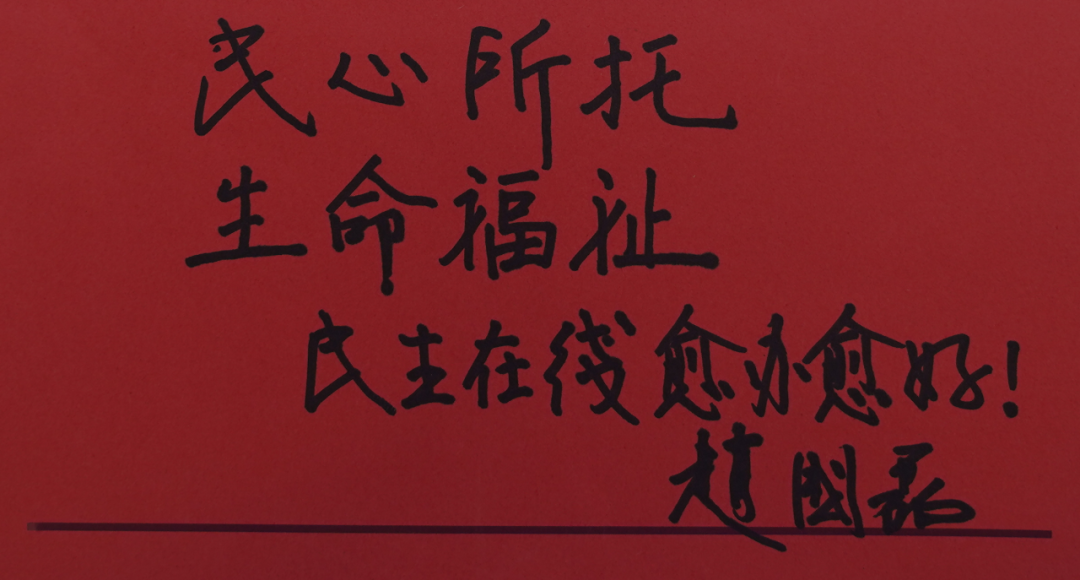 民心所托
生命福祉
民主在线愈办愈好!
趙國磊